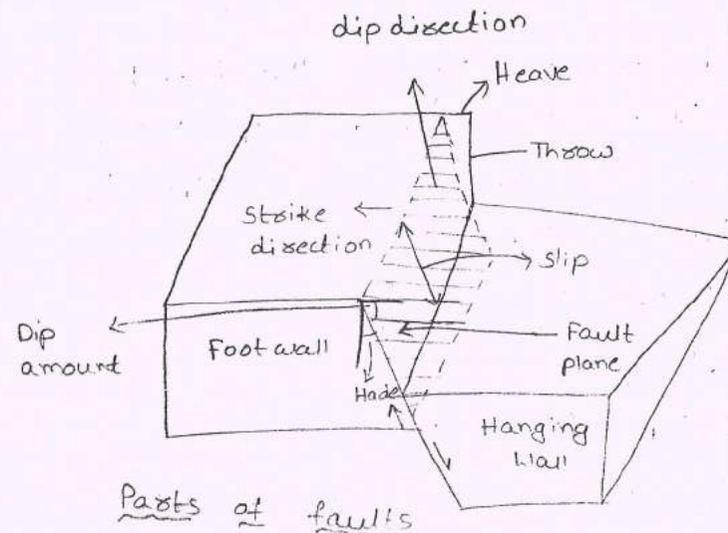 dip direction
Heave
Throw
Strike
direction
Slip
Dip
amount
Foot wall
Fault
plane
Hade
Hanging
Wall
Parts of faults